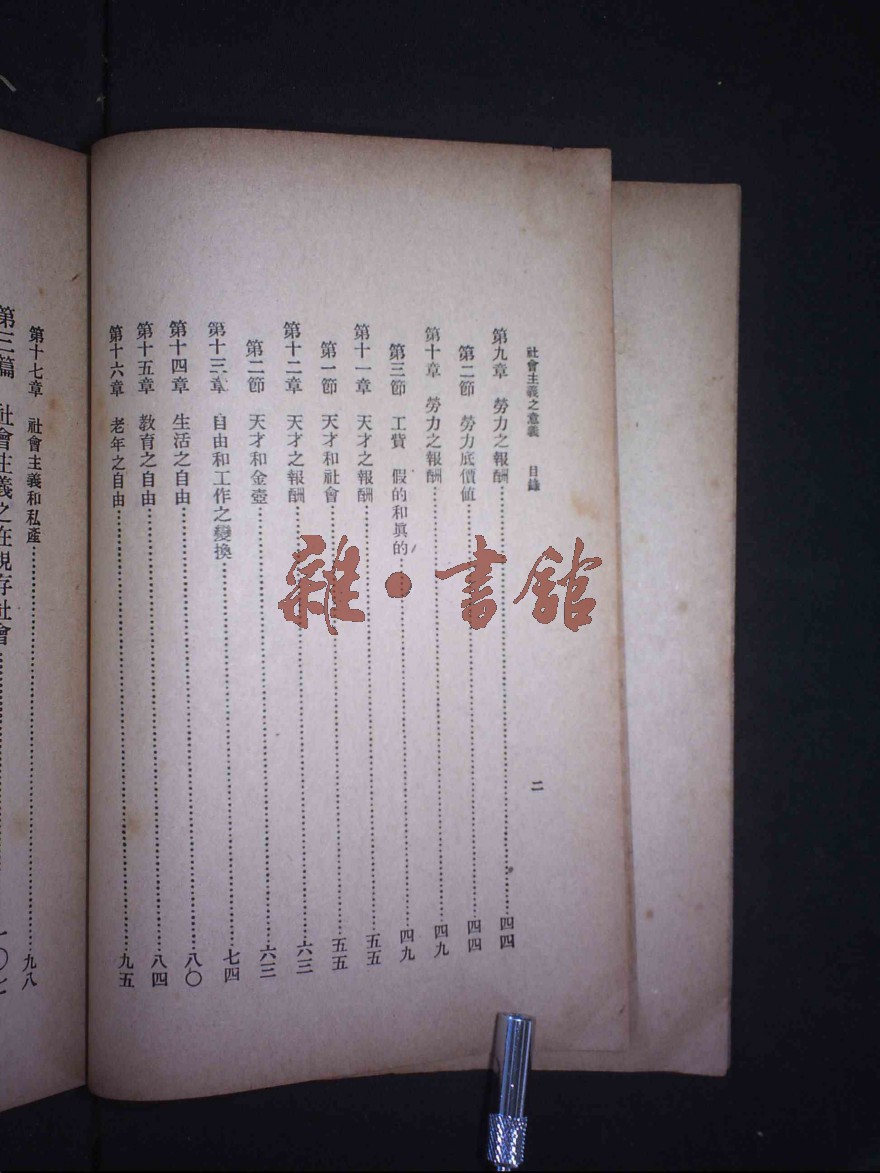 社會主義之意義　目錄
二
第九章　勞力之報酬………四四
第二節　勞力底價値………四四
第十章　勞力之報酬………四九
第三節　工貲　假的和眞的………四九
第十一章　天才之報酬………五五
第一節　天才和社會………五五
第十二章　天才之報酬………六三
第二節　天才和金壺………六三
第十三章　自由和工作之變換………七四
第十四章　生活之自由………八〇
第十五章　敎育之自由………八四
第十六章　老年之自由………九五
第十七章　社會主義和私產………九八
第三篇　社會主義之在現存社會………一〇七
雜・書館